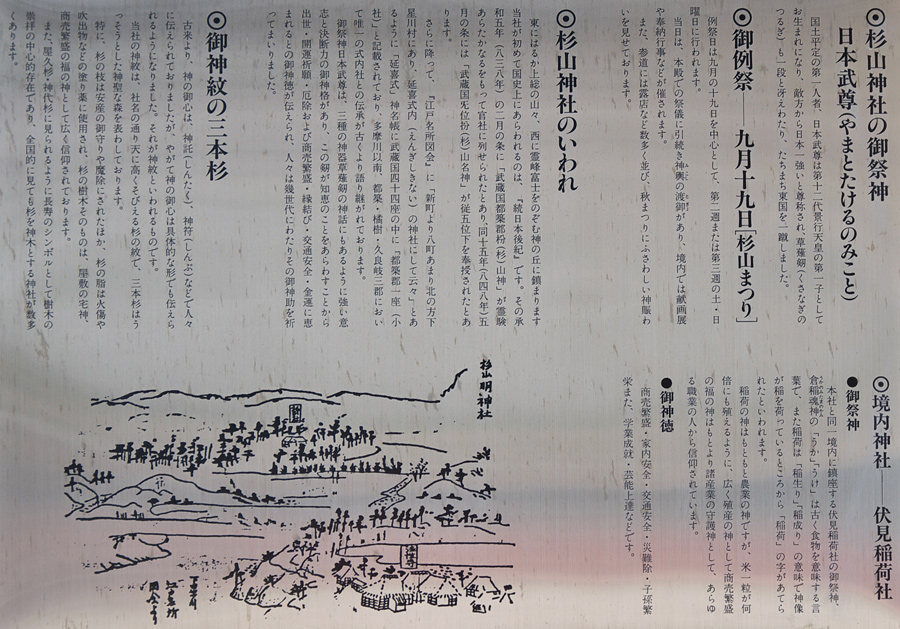 ◎杉山神社の御祭神
日本武尊(やまとたけるのみこと)
国土平定の第一人者、日本武尊は第十二代景行天皇の第一子として
お生まれになり、敵方から日本一強いと尊称され、草薙剣(くさなぎの
つるぎ)も一段と冴えわたり、たちまち東国を一蹴しました。
◎御例祭――九月十九日[杉山まつり]
例祭日は九月の十九日を中心として、第二週または第三週の土・日
曜日に行われます。
当日は、本殿での祭儀に引続き神輿の渡御があり、境内では献画展
や奉納行事などが催されます。
また、参道には露店など数多く並び、秋まつりにふさわしい神賑わ
いを見せております。
◎杉山神社のいわれ
東にはるか上総の山々、西に霊峰富士をのぞむ神の丘に鎮まります
当社が初めて国史上にあらわれるのは、『続日本後紀』です。その承
和五年(八三八年)の二月の条に「武蔵国都築郡枌(杉)山神」が霊験
あらたかなるをもって官社に列せられたとあり、同十五年(八四八年)五
月の条には「武蔵国无位枌(杉)山名神」が従五位下を奉授されたとあ
ります。
さらに降って、『江戸名所図会』に「新町より八町あまり北の方下
星川村にあり、延喜式内(えんぎしきない)の神社にして云々」とあ
るように『延喜式』神名帳に武蔵国四十四座の中に「都築郡一座(小
社)」と記載されており、多摩川以南、都築・橘樹・久良岐三郡におい
て唯一の式内社との伝承が古くより語り継がれております。
御祭神日本武尊は、三種の神器草薙剣の神話にもあるように強い意
志と決断力の御神格があり、この剣が知恵のことをあらわすことから
出世・開運祈願・厄除および商売繁盛・縁結び・交通安全・金運に恵
まれるとの御神徳が伝えられ、人々は幾世代にわたりその御神助を祈
ってまいりました。
◎御神紋の三本杉
古来より、神の御心は、神託(しんたく)、神符(しんぷ)などで人々
に伝えられておりましたが、やがて神の御心は具体的な形でも伝えら
れるようになりました。それが神紋といわれるものです。
当社の神紋は、社名の通り天に高くそびえる杉の紋で、三本杉はう
っそうとした神聖な森を表わしております。
特に、杉の枝は安産の御守りや魔除にされたほか、杉の脂は火傷や
吹出物などの塗り薬に使用され、杉の樹木そのものは、屋敷の宅神、
商売繁盛の福の神として広く信仰されております。
また、屋久杉・神代杉に見られるように長寿のシンボルとして樹木の
崇拝の中心的存在であり、全国的に見ても杉を神木とする神社が数多
くあります。
◎境内神社――伏見稲荷社
●御祭神
本社と同一境内に鎮座する伏見稲荷社の御祭神、
倉稲魂神の「うか」「うけ」は古く食物を意味する言
葉で、また稲荷は「稲生り」「稲成り」の意味で神像
が稲を荷っているところから「稲荷」の字があてら
れたといわれます。
稲荷の神はもともと農業の神ですが、米一粒が何
倍にも殖えるように、広く殖産の神として商売繁盛
の福の神はもとより諸産業の守護神として、あらゆ
る職業の人から信仰されています。
●御神徳
商売繁盛・家内安全・交通安全・災難除・子孫繁
栄また、学業成就・芸能上達などです。
杉山明神社